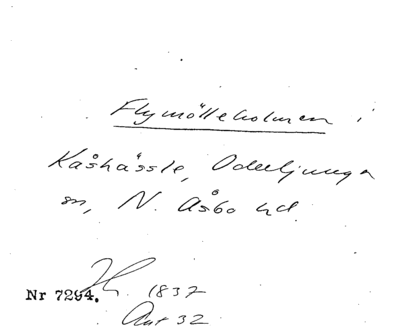 Flymölleholmen i
Kåshässle, Oderljunga
sn, N. Åsbo hd.
Nr 7294. 1837
Akt 32